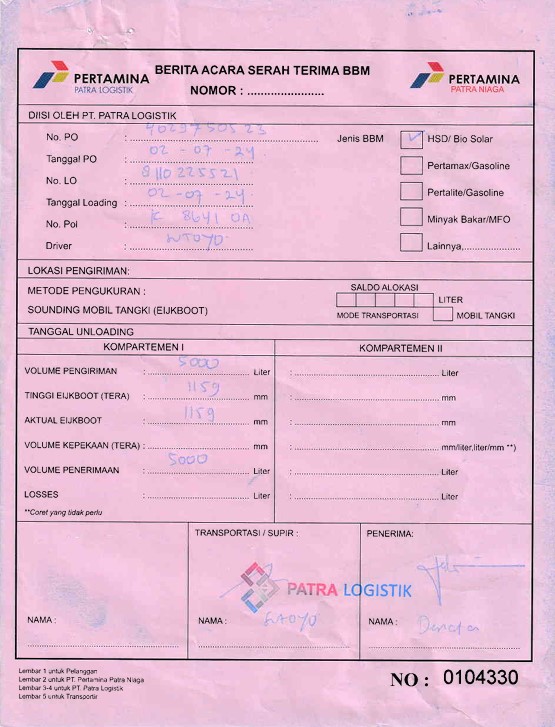 PERTAMINA
PATRA LOGISTIK
BERITA ACARA SERAH TERIMA BBM
NOMOR : ........................
PERTAMINA
PATRA NIAGA
DIISI OLEH PT. PATRA LOGISTIK
No. PO : 4029750523
Tanggal PO : 02-07-24
No. LO : 8110225521
Tanggal Loading : 02-07-24
No. Pol : K 8641 OA
Driver : WTOYO
Jenis BBM
HSD/ Bio Solar
Pertamax/Gasoline
Pertalite/Gasoline
Minyak Bakar/MFO
Lainnya,..................
LOKASI PENGIRIMAN:
METODE PENGUKURAN :
SOUNDING MOBIL TANGKI (EIJKBOOT)
SALDO ALOKASI
LITER
MODE TRANSPORTASI
MOBIL TANGKI
TANGGAL UNLOADING
KOMPARTEMEN I
KOMPARTEMEN II
VOLUME PENGIRIMAN : 5000 Liter : Liter
TINGGI EIJKBOOT (TERA) : 1159 mm : mm
AKTUAL EIJKBOOT : 1159 mm : mm
VOLUME KEPEKAAN (TERA) : mm : mm/liter,liter/mm **)
VOLUME PENERIMAAN : 5000 Liter : Liter
LOSSES : Liter : Liter
**Coret yang tidak perlu
TRANSPORTASI / SUPIR :
PENERIMA:
PATRA LOGISTIK
NAMA :
NAMA : WTOYO
NAMA :
Lembar 1 untuk Pelanggan
Lembar 2 untuk PT. Pertamina Patra Niaga
Lembar 3-4 untuk PT. Patra Logistik
Lembar 5 untuk Transportir
NO : 0104330